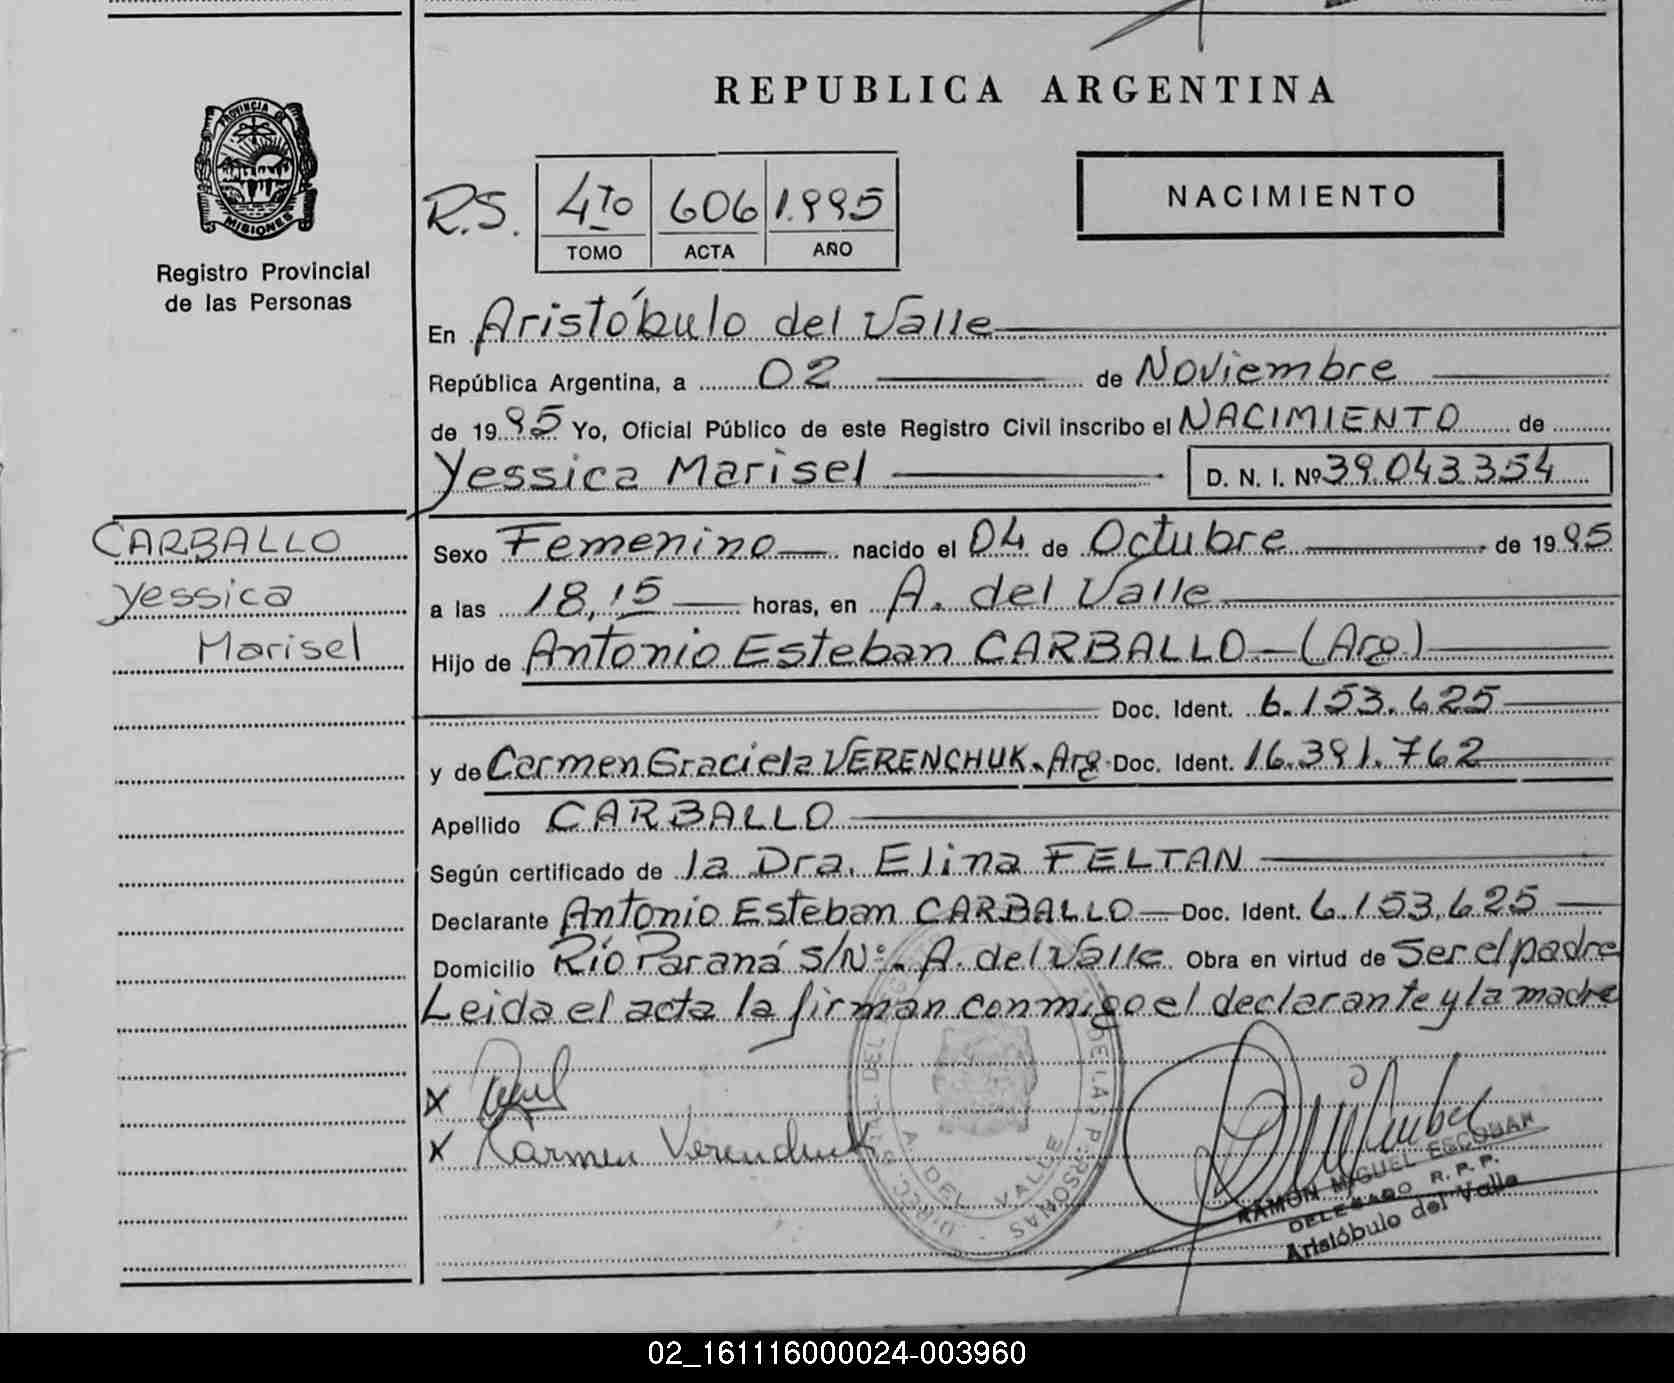 REPUBLICA ARGENTINA
PROVINCIA DE MISIONES
Registro Provincial
de las Personas
R.S. 4to 606 1.995
TOMO ACTA AÑO
NACIMIENTO
En Aristóbulo del Valle
República Argentina, a 02 de Noviembre
de 1995 Yo, Oficial Público de este Registro Civil inscribo el NACIMIENTO de
Yessica Marisel D. N. I. Nº 39.043.354
CARBALLO
Yessica
Marisel
Sexo Femenino nacido el 04 de Octubre de 1995
a las 18,15 horas, en A. del Valle
Hijo de Antonio Esteban CARBALLO-(Arg)
Doc. Ident. 6.153.625
y de Carmen Graciela VERENCHUK. Arg. Doc. Ident. 16.391.762
Apellido CARBALLO
Según certificado de la Dra. Elina FELTAN
Declarante Antonio Esteban CARBALLO Doc. Ident. 6.153.625
Domicilio Río Paraná S/Nº. A. del Valle Obra en virtud de Ser el padre
Leida el acta la firman conmigo el declarante y la madre
X
X Carmen Verenchuk
A. DEL VALLE
RAMON MIGUEL ESCOBAR
DELEGADO R. P. P.
Aristóbulo del Valle
02_161116000024-003960